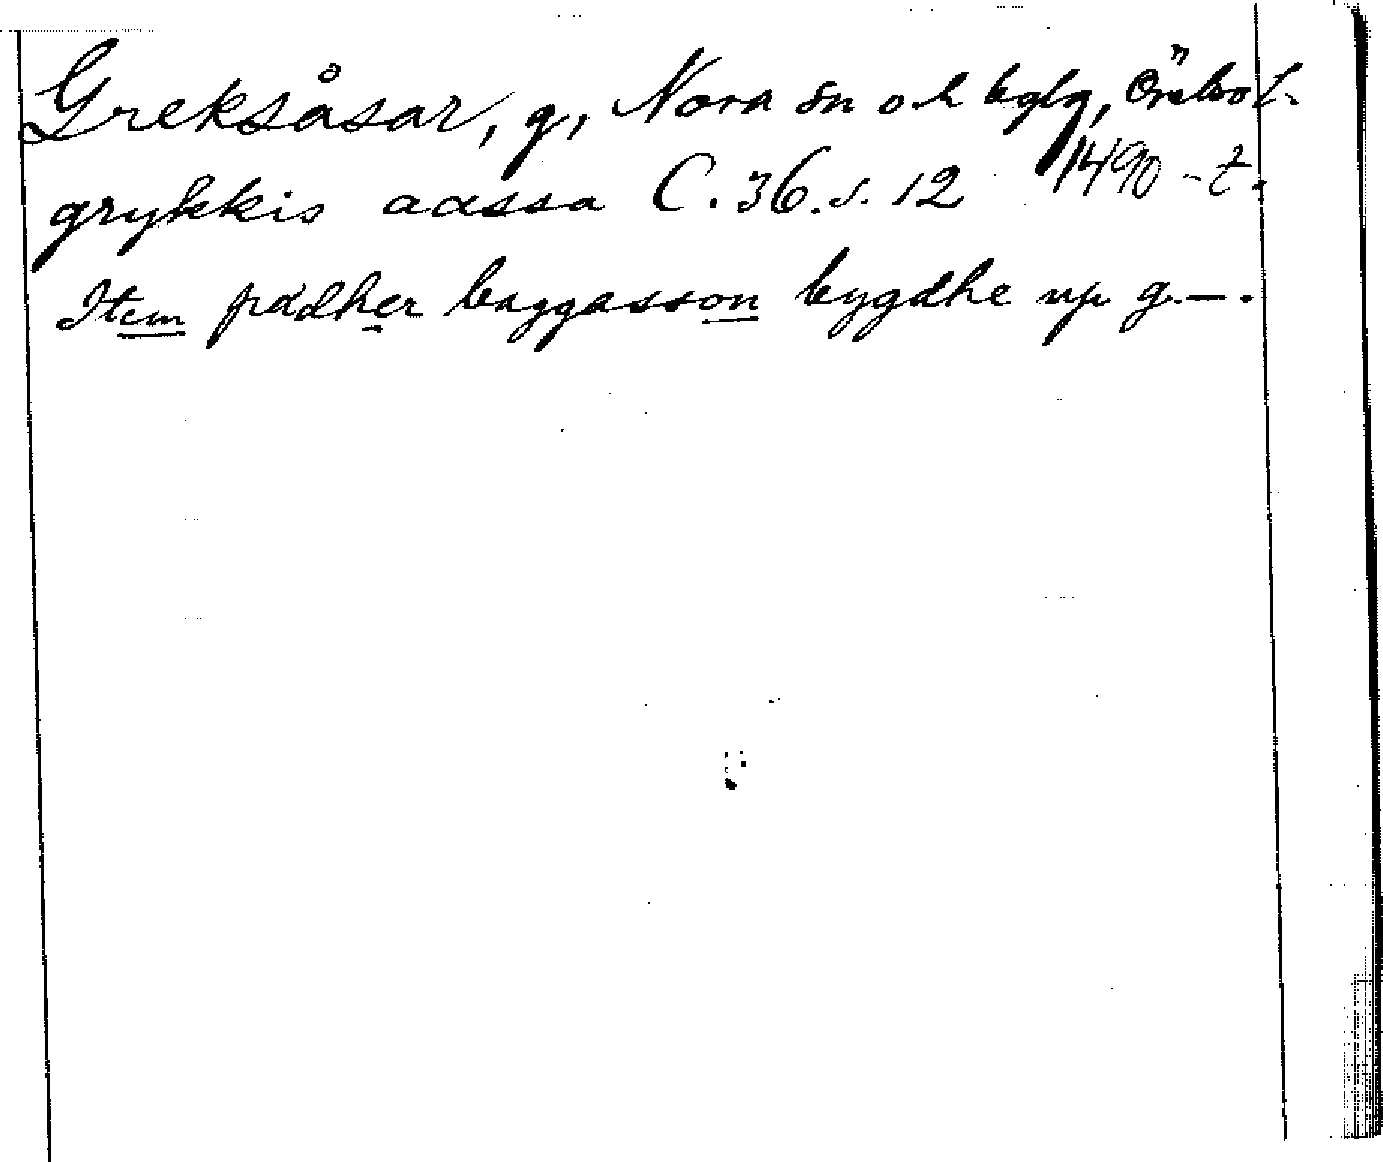 Greksåsar, g, Nora sn o. h bglg, Örebro l.
grykkis aassa C. 36. s. 12 1490 - t.
Item pädher baggasson bygdhe up g. — .